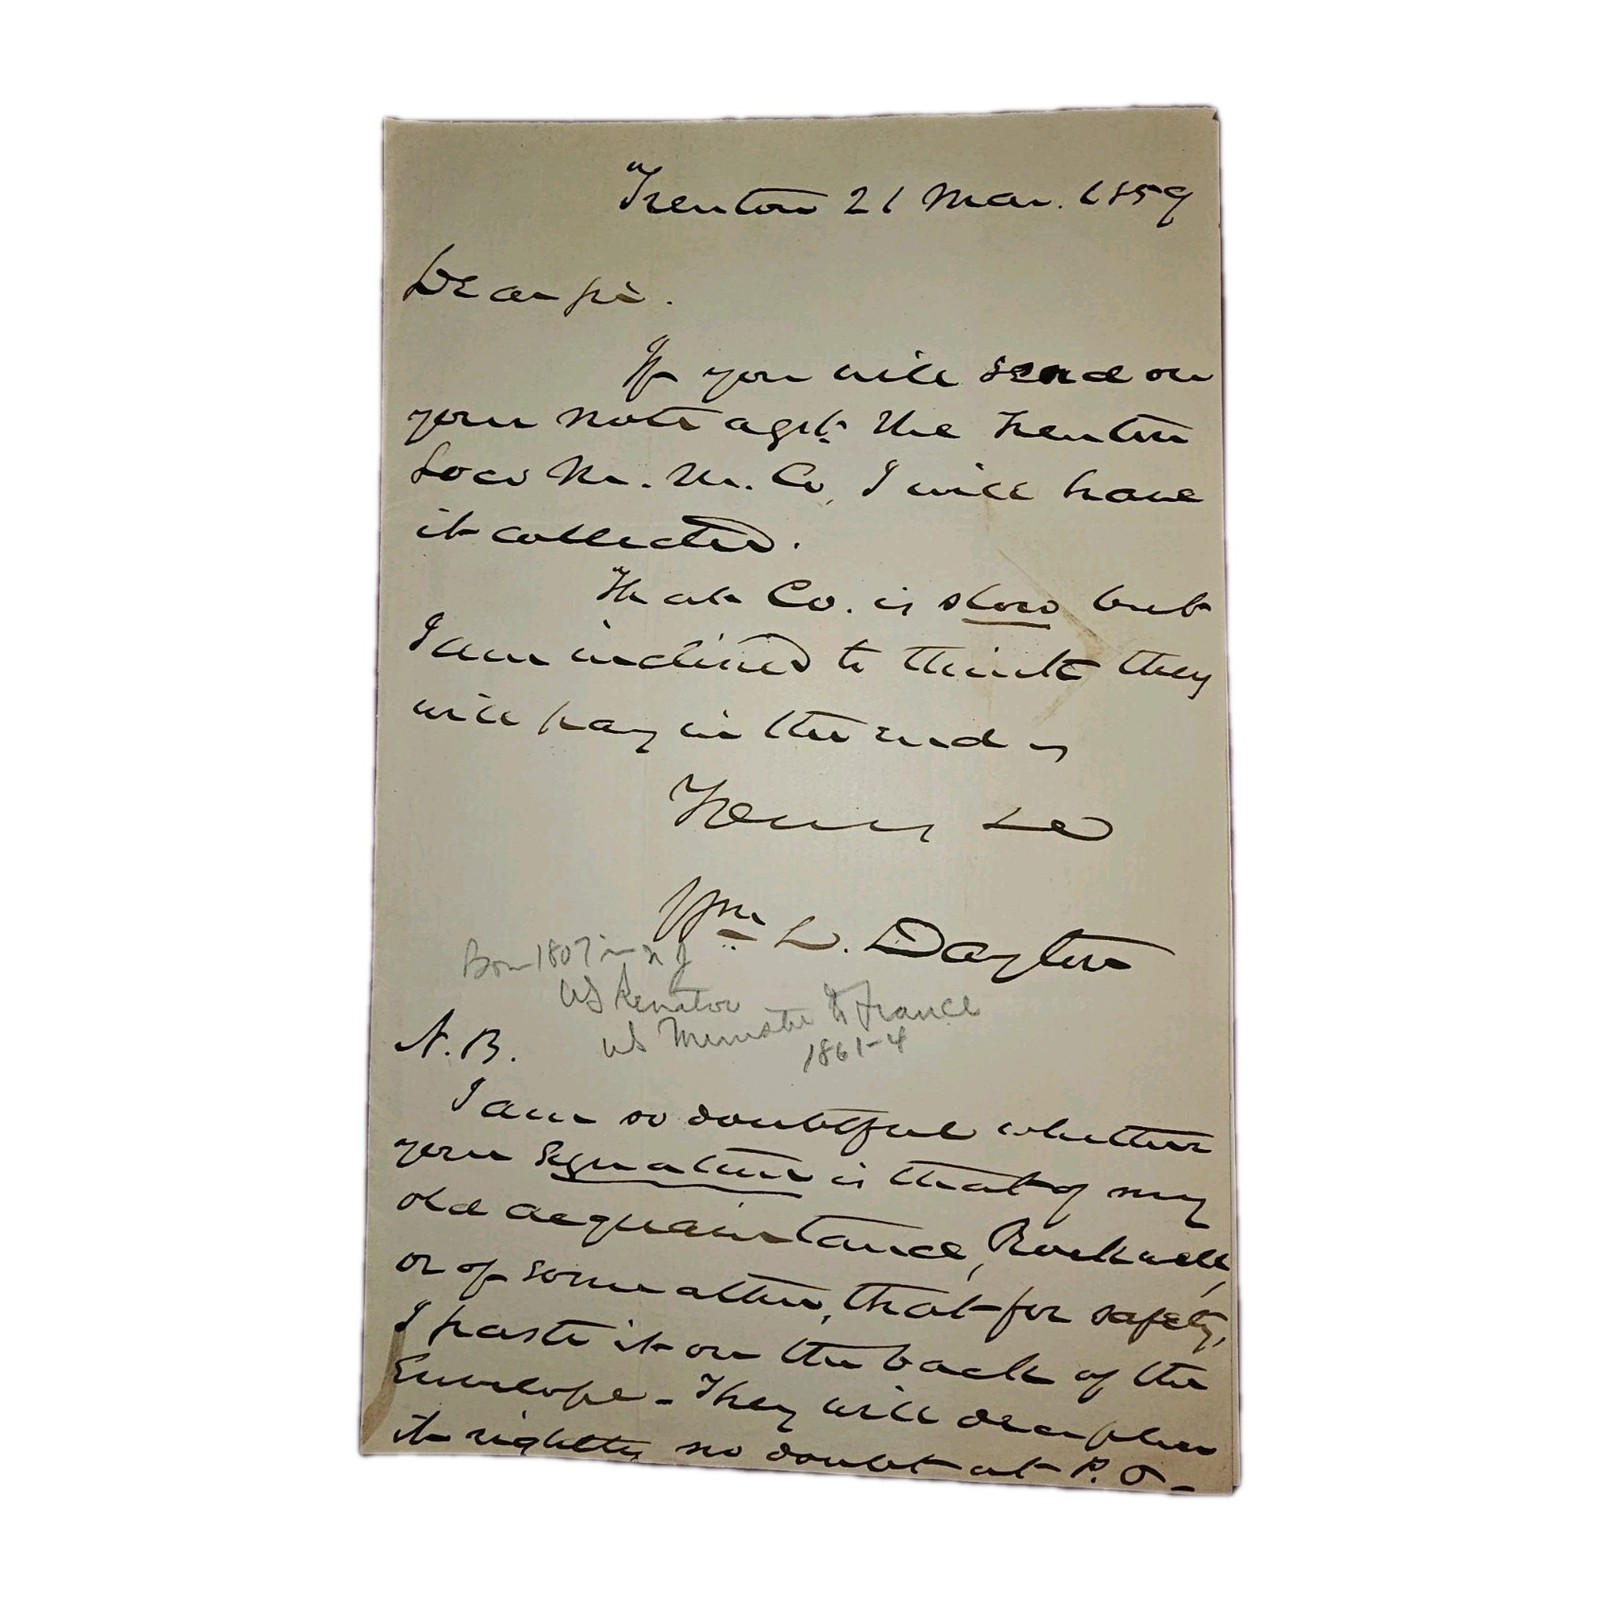 Trenton 21 Mar. 1859
Dear Sir.
If you will send on
your note agst. the Trenton
Loco M. M. Co, I will have
it collected.
That Co. is slow but
I am inclined to think they
will pay in the end
Yours &c
Wm L. Dayton
Born 1807 in N J
US Senator
US Minister to France
1861-4
N.B.
I am so doubtful whether
your signature is that of my
old acquaintance, Rockwell,
or of some other, that for safety,
I paste it on the back of the
Envelope - They will decipher
it rightly no doubt at P.O -